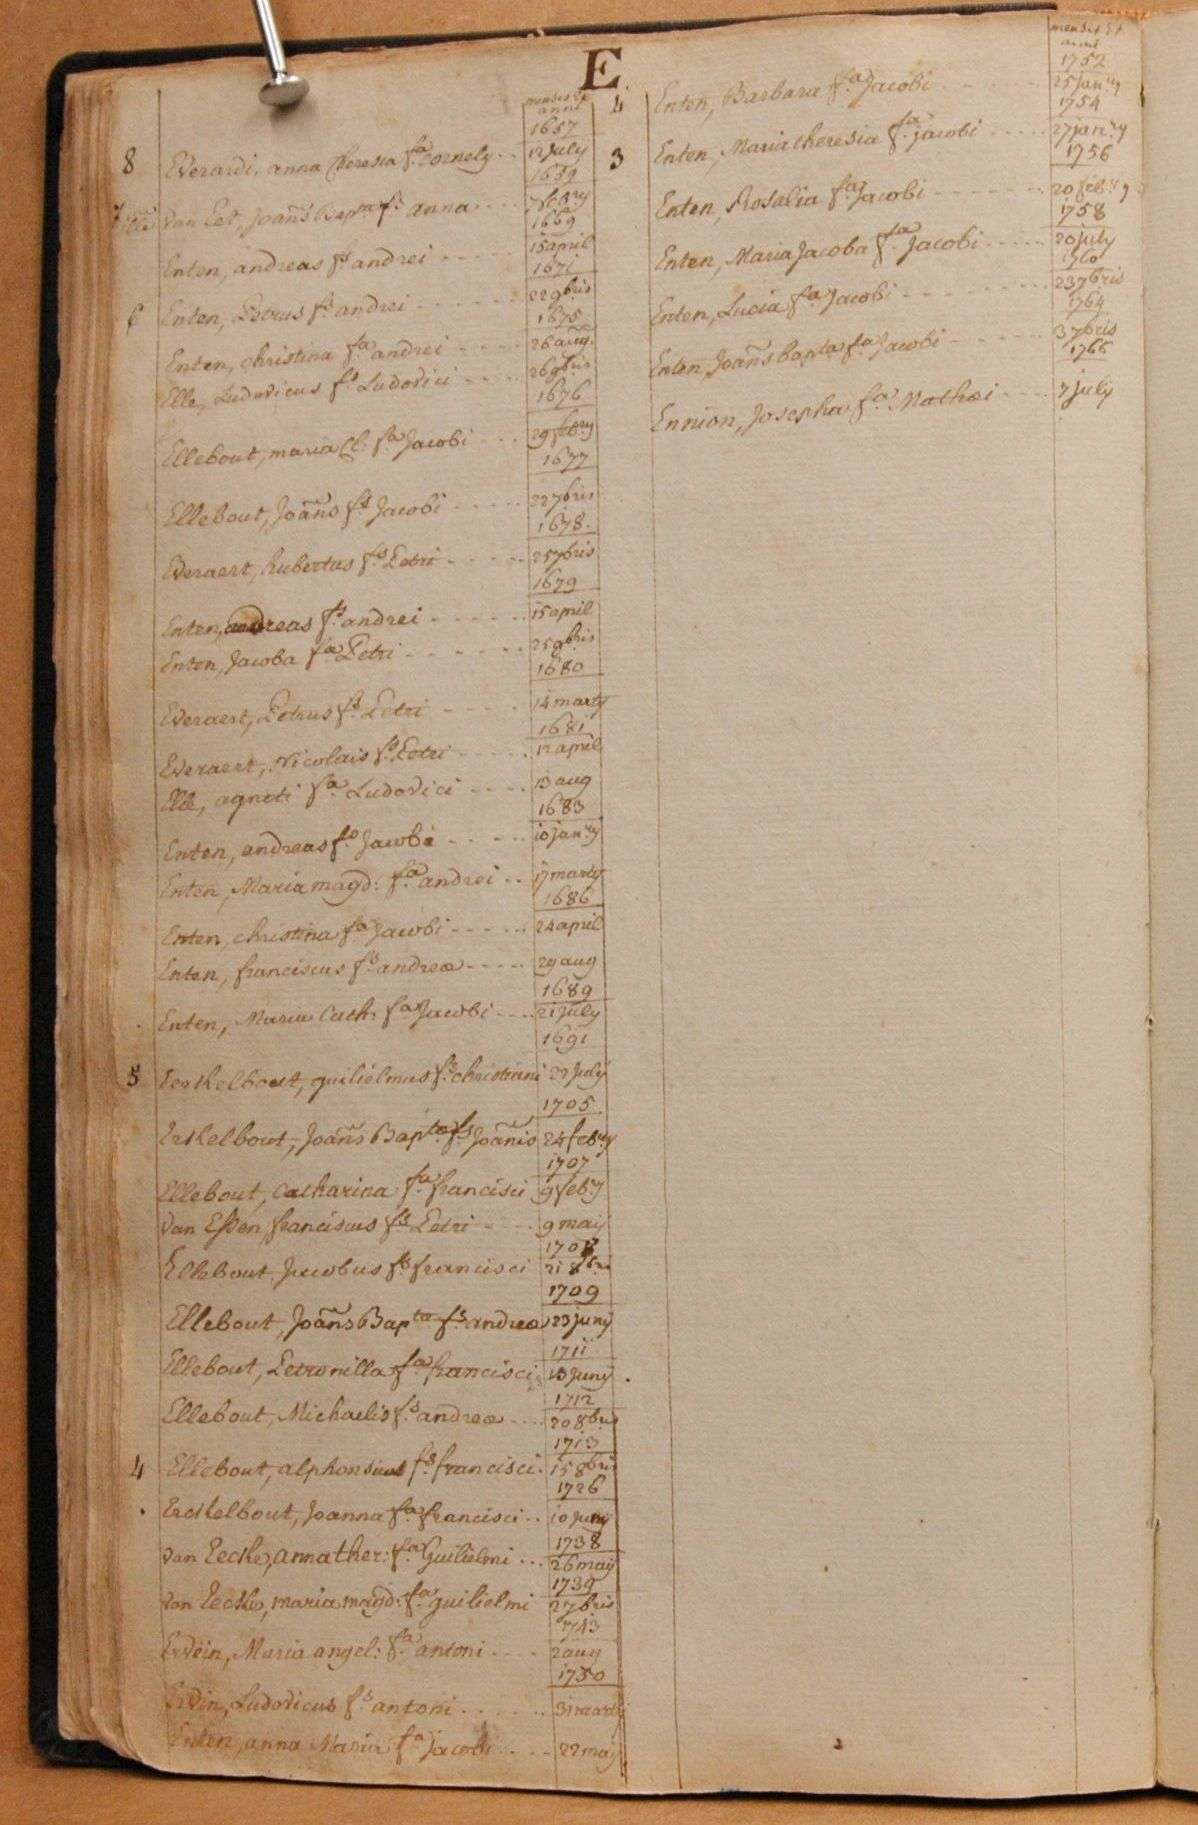 E
menses et
anni
1657
8 Everardi, anna theresia fa. Cornely .. 12 july
1659
van Eet, Joañs Bapta fs. anna --- 7 feb:ry
1669
Enten, andreas fs. andrei ----- 15 april
1671
6 Enten, Petrus fs. andrei ------ 22 9bris
1675
Enten, christina fa. andrei ---- 26 aug.
Elle, Ludovicus fs. Ludovici ---- 26 9bris
1676
Ellebout, maria Cl: fa. Jacobi --- 29 feb:ry
1677
Ellebout, Joañs fs. Jacobi ----- 22 7bris
1678.
Everaert, hubertus fs. Petri ----- 25 7bris
1679
Enten, andreas fs. andrei ------ 15 april
Enten, Jacoba fa. Petri ------ 25 9bris
1680
Everaert, Petrus fs. Petri ---- 14 marty
1681
Everaert, Nicolais fs. Petri ----- 12 april
Elle, agneti fa. Ludovici ---- 13 aug
1683
Enten, andreas fs. Jacobi ----- 10 jan:ry
Enten, Maria magd: fa. andrei .. 17 marty
1686
Enten, christina fa. Jacobi ----- 24 april
Enten, franciscus fs. andreæ ----- 29 aug
1689
Enten, Maria Cath: fa. Jacobi ---- 21 july
1691
5 Eerskelbout, guilielmus fs. christiani 22 july
1705.
Erskelbout, Joañs Bapta fs. Joañis 24 feb:ry
1707
Ellebout, Catharina fa. francisci 9 feb:ry
van Essen, franciscus fs. Petri ---- 9 maij
1708
Ellebout, Jacobus fs. francisci 21 8bris
1709
Ellebout, Joañs Bapta fs. andreæ 23 Junij
1711
Ellebout, Petronilla fa. francisci 13 Junij .
1712
Ellebout, Michaelis fs. andreæ .... 20 8bris
1713
4 Ellebout, alphonsius fs. francisci. 15 8bris
1726
Erckelbout, Joanna fa. francisci .. 10 Junij
1738
van Eecke, anna ther: fa. Guilielmi ... 26 maij
1739
van Eecke, maria magd: fa. guilielmi 2 7bris
1743
Ervein, Maria angel: fa. antoni .... 2 aug
1750
Ervin, Ludovicus fs. antoni ...... 31 martij
Enten, anna Maria fa. Jacobi .... 22 maij
menses et
anni
1752
4 Enten, Barbara fa. Jacobi ------ 25 jan:ry
1754
3 Enten, Maria theresia fa. jacobi ----- 27 jan:ry
1756
Enten, Rosalia fa. Jacobi ------- 20 feb:ry
1758
Enten, Maria Jacoba fa. Jacobi ----- 20 july
1760
Enten, Lucia fa. Jacobi -------- 23 7bris
1764
Enten, Joañs bapta fa. Jacobi ------ 3 7bris
1766
Ennion, Josepha fa. Mathæi ---- 7 july